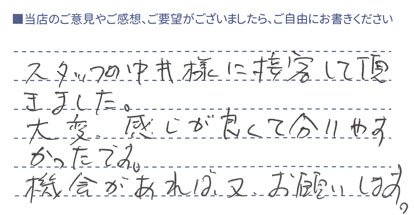 ■当店のご意見やご感想、ご要望がございましたら、ご自由にお書きください
スタッフの中井様に接客して頂
きました。
大変、感じが良くて分りやす
かったです。
機会があれば、又、お願いします。